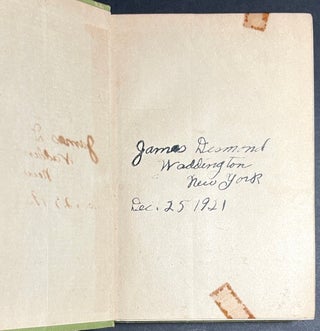 James Desmond
Waddington
New York
Dec. 25 1921